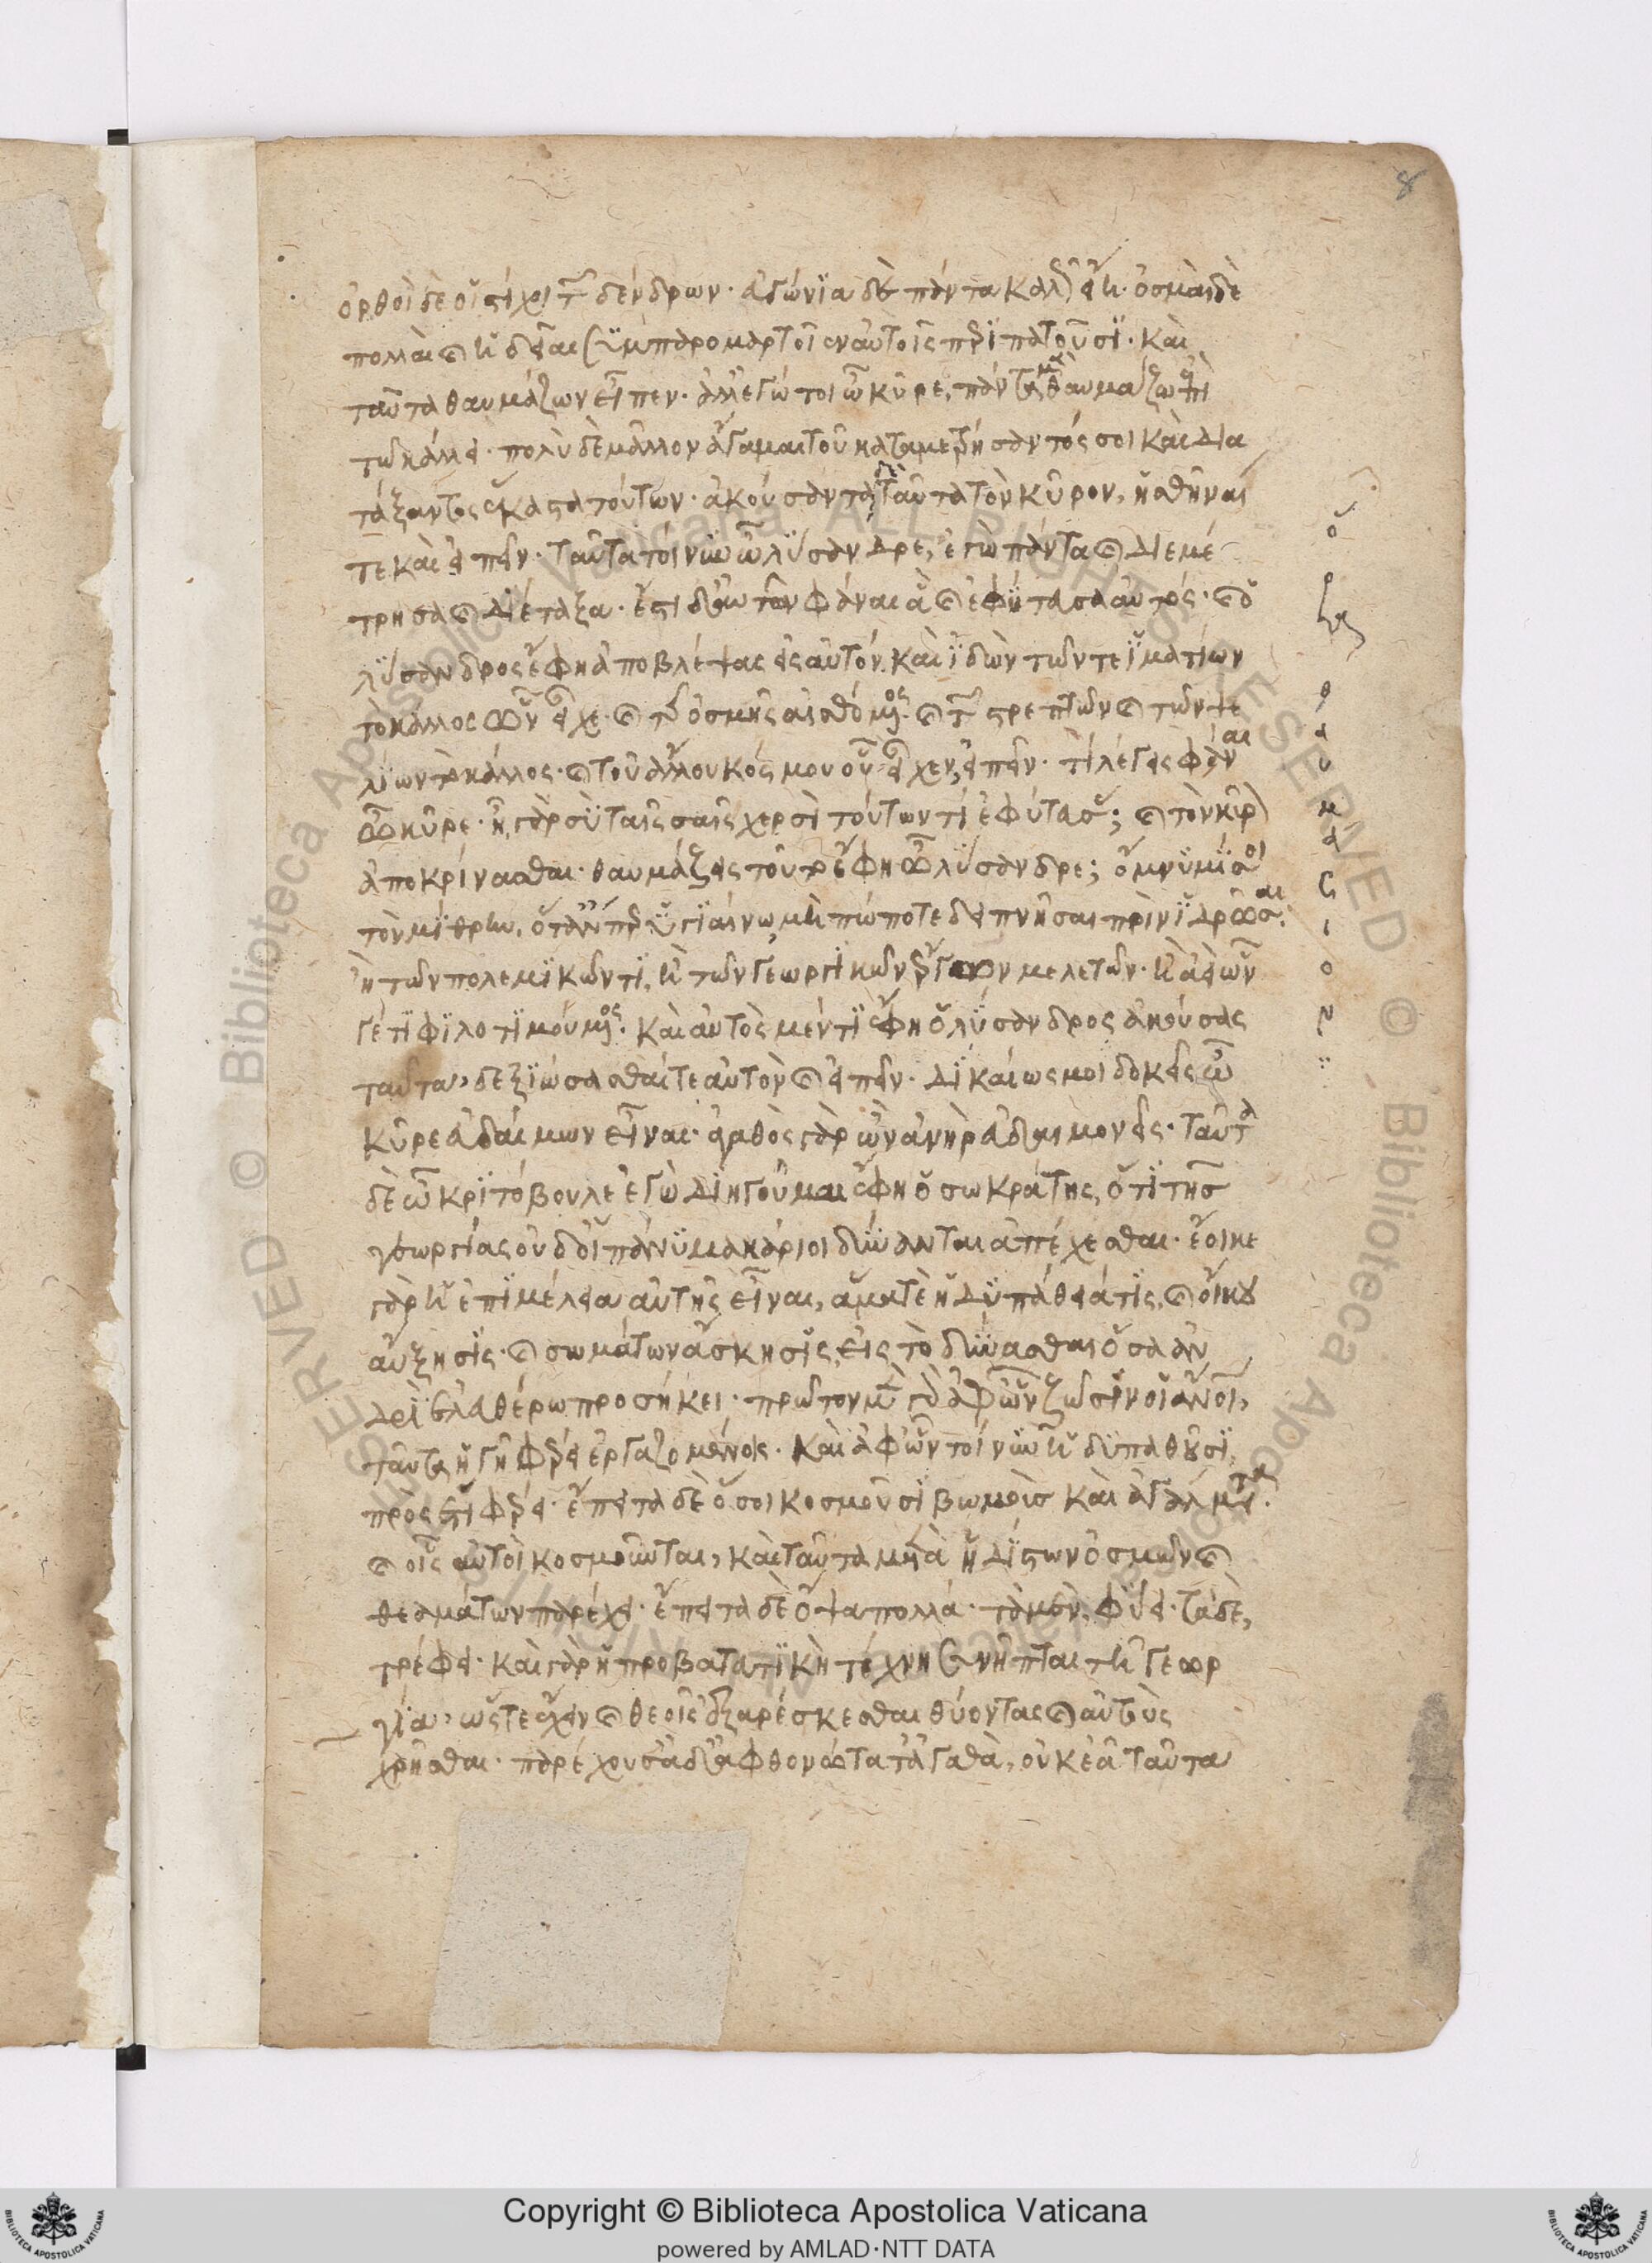 8
ὀρθοὶ δὲ οἱ στίχοι τῶν δένδρων· εὐγώνια δὲ πάντα καλῶς εἴη· ὀσμαὶ δὲ
πολλαὶ καὶ ἡδεῖαι συμπαρομαρτοῖεν αὐτοῖς περιπατοῦσι· καὶ
ταῦτα θαυμάζων εἶπεν· ἀλλ' ἐγώ τοι ὦ κῦρε, πάντα μὲν θαυμάζω ἐπὶ
τῶ κάλλει· πολὺ δὲ μᾶλλον ἄγαμαι τοῦ καταμετρήσαντός σοι καὶ δια
τάξαντος ἕκαστα τούτων· ἀκούσαντα δὲ ταῦτα τὸν κῦρον, ἡσθῆναί
τε καὶ εἰπεῖν· ταῦτα τοίνυν ὦ λύσανδρε, ἐγὼ πάντα καὶ διεμέ
τρησα καὶ διέταξα· ἔστι δ' αὐτῶν φάναι ἃ καὶ ἐφύτευσα αὐτός· καὶ ὁ
λύσανδρος ἔφη ἀποβλέψας εἰς αὐτόν. καὶ ἰδὼν τῶν τε ἱματίων
τὸ κάλλος ὧν εἶχε· καὶ τῆς ὀσμῆς αἰσθόμενος· καὶ τῶν στρεπτῶν καὶ τῶν ψε
λίων τὸ κάλλος· καὶ τοῦ ἄλλου κόσμου οὗ εἶχεν, εἰπεῖν· τί λέγεις φάναι
ὦ κῦρε· ἦ γὰρ σὺ ταῖς σαῖς χερσὶ τούτων τί ἐφύτευσας; καὶ τὸν κῦρον
ἀποκρίνασθαι· θαυμάζεις τοῦτο ἔφη ὦ λύσανδρε; ὄμνυμί σοι
τὸν μίθρην, ὅταν περ ὑγιαίνω, μὴ πώποτε δειπνῆσαι πρὶν ἱδρῶσαι·
ἢ τῶν πολεμικῶν τί, ἢ τῶν γεωργικῶν ἔργων μελετῶν· ἢ ἀεὶ ὧν
γέ τι φιλοτιμούμενος· καὶ αὐτὸς μέντοι ἔφη ὁ λύσανδρος ἀκούσας
ταῦτα, δεξιώσασθαί τε αὐτὸν καὶ εἰπεῖν· δικαίως μοι δοκεῖς ὦ
κῦρε εὐδαίμων εἶναι· ἀγαθὸς γὰρ ὢν ἀνὴρ εὐδαιμονεῖς· ταῦτα
δὲ ὦ κριτόβουλε ἐγὼ διηγοῦμαι ἔφη ὁ σωκράτης, ὅτι τῆς
γεωργίας οὐδ' οἱ πάνυ μακάριοι δύνανται ἀπέχεσθαι· ἔοικε
γὰρ ἡ ἐπιμέλεια αὐτῆς εἶναι, ἅμα τὲ ἡδυπάθειά τις, καὶ οἴκου
αὔξησις· καὶ σωμάτων ἄσκησις, εἰς τὸ δύνασθαι ὅσα ἀν
δρὶ ἐλευθέρω προσήκει· πρῶτον μὲν γὰρ ἀφ' ὧν ζῶσιν οἱ ἄνθρωποι,
ταῦτα ἡ γῆ φέρει ἐργαζομένοις· καὶ ἀφ' ὧν τοίνυν ἡδυπαθοῦσι,
προσεπιφέρει· ἔπειτα δὲ ὅσοι κοσμοῦσι βωμοὺς καὶ ἀγάλματα·
καὶ οἷς αὐτοὶ κοσμοῦνται, καὶ ταῦτα μετὰ ἡδίστων ὀσμῶν καὶ
θεαμάτων παρέχει· ἔπειτα δὲ ὄψα πολλά· τὰ μὲν, φύει· τὰ δὲ,
τρέφει· καὶ γὰρ ἡ προβατατικὴ τέχνη συνῆπται τῆ γεωρ
γία, ὥστε ἔχειν καὶ θεοῖς ἐξαρέσκεσθαι θύοντας καὶ αὐτοὺς
χρῆσθαι· παρέχουσα δ' ἀφθονώτατα τἀγαθὰ, οὐκ ἐᾶ ταῦτα
ὅρκος
θαυμάσιος: